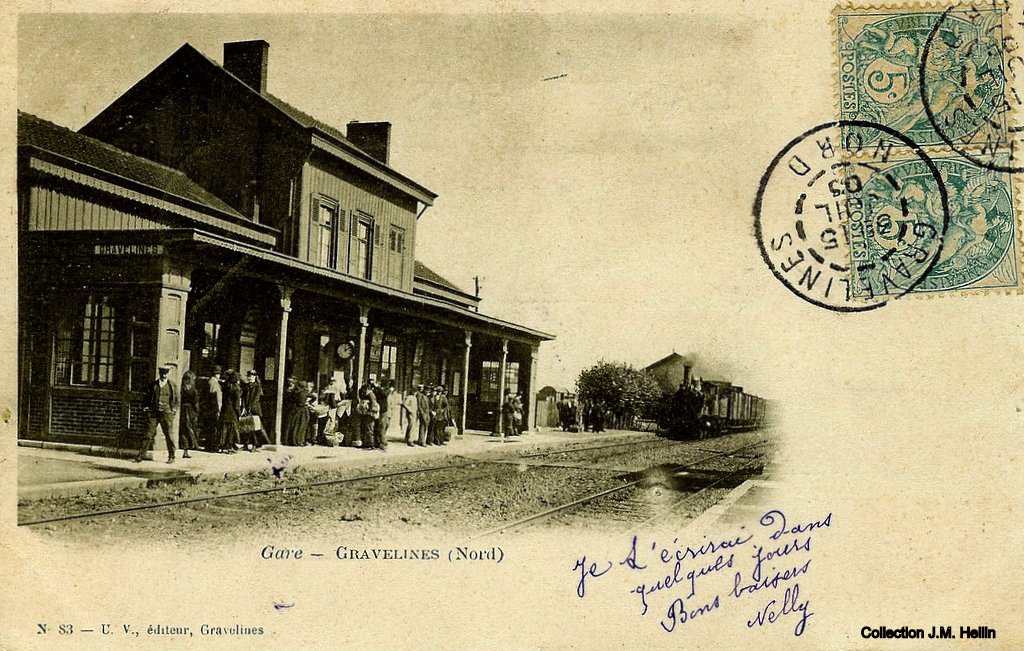 POSTES
5c
POSTES
5c
GRAVELINES
NORD
15
JUIL
03
GRAVELINES
Gare – GRAVELINES (Nord)
Je t'écrirai dans
quelques jours
Bons baisers
Nelly
N° 83 – U. V., éditeur, Gravelines
Collection J.M. Hellin